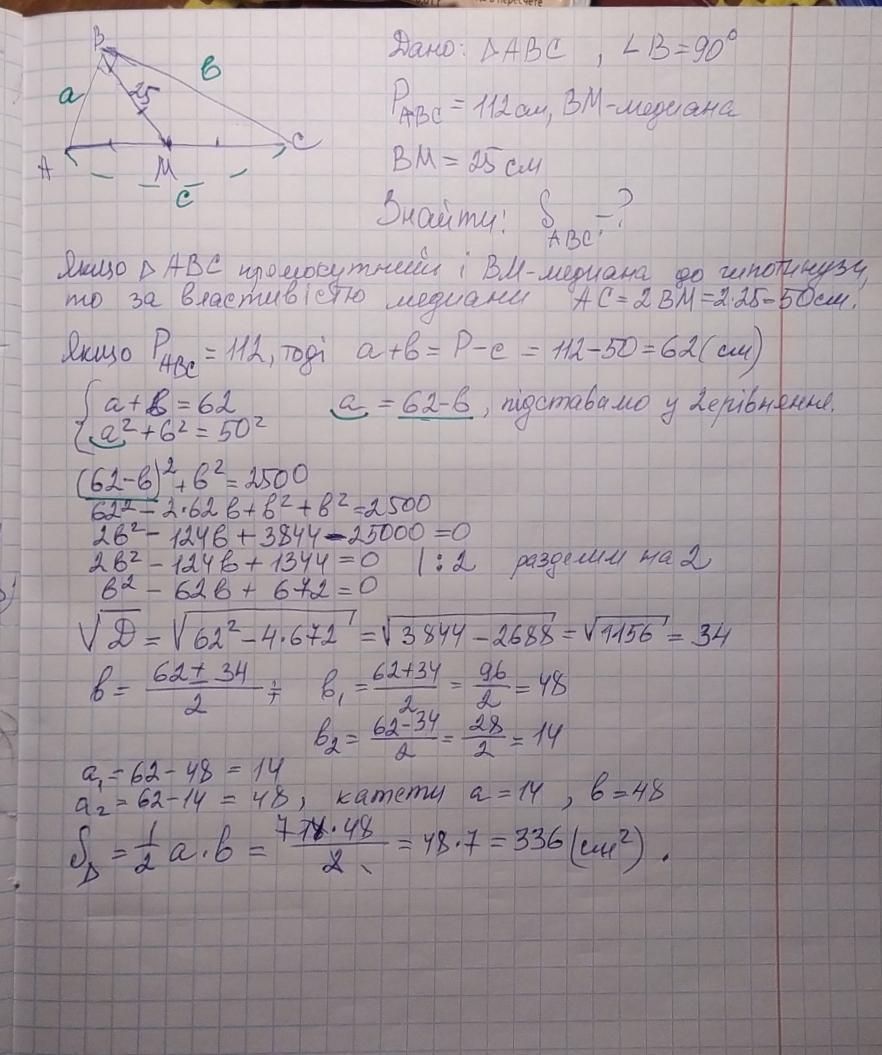 B
a
25
в
A
M
C
c
Дано: △ABC, ∠B=90°
P_ABC = 112 см, BM-медиана
BM = 25 см
Знайти: S_ABC - ?
Якщо △ABC прямокутний і BM-медиана до гипотинузи,
то за властивістю медиани AC = 2BM = 2·25 = 50см.
Якщо P_ABC = 112, тоді a+в = P-c = 112-50 = 62(см)
{ a+в = 62     a = 62-в, підставамо у 2 ерівнення.
a²+в² = 50²
(62-в)²+в² = 2500
62² - 2·62в + в² + в² = 2500
2в² - 124в + 3844 - 25000 = 0
2в² - 124в + 1344 = 0 | : 2 разделим на 2
в² - 62в + 672 = 0
√D = √62²-4·672 = √3844-2688 = √1156 = 34
в = (62±34)/2 ; в₁ = (62+34)/2 = 96/2 = 48
в₂ = (62-34)/2 = 28/2 = 14
a₁ = 62-48 = 14
a₂ = 62-14 = 48, катети a = 14, в = 48
S_△ = 1/2 a·в = 7 14·48/2 = 48·7 = 336 (см²).